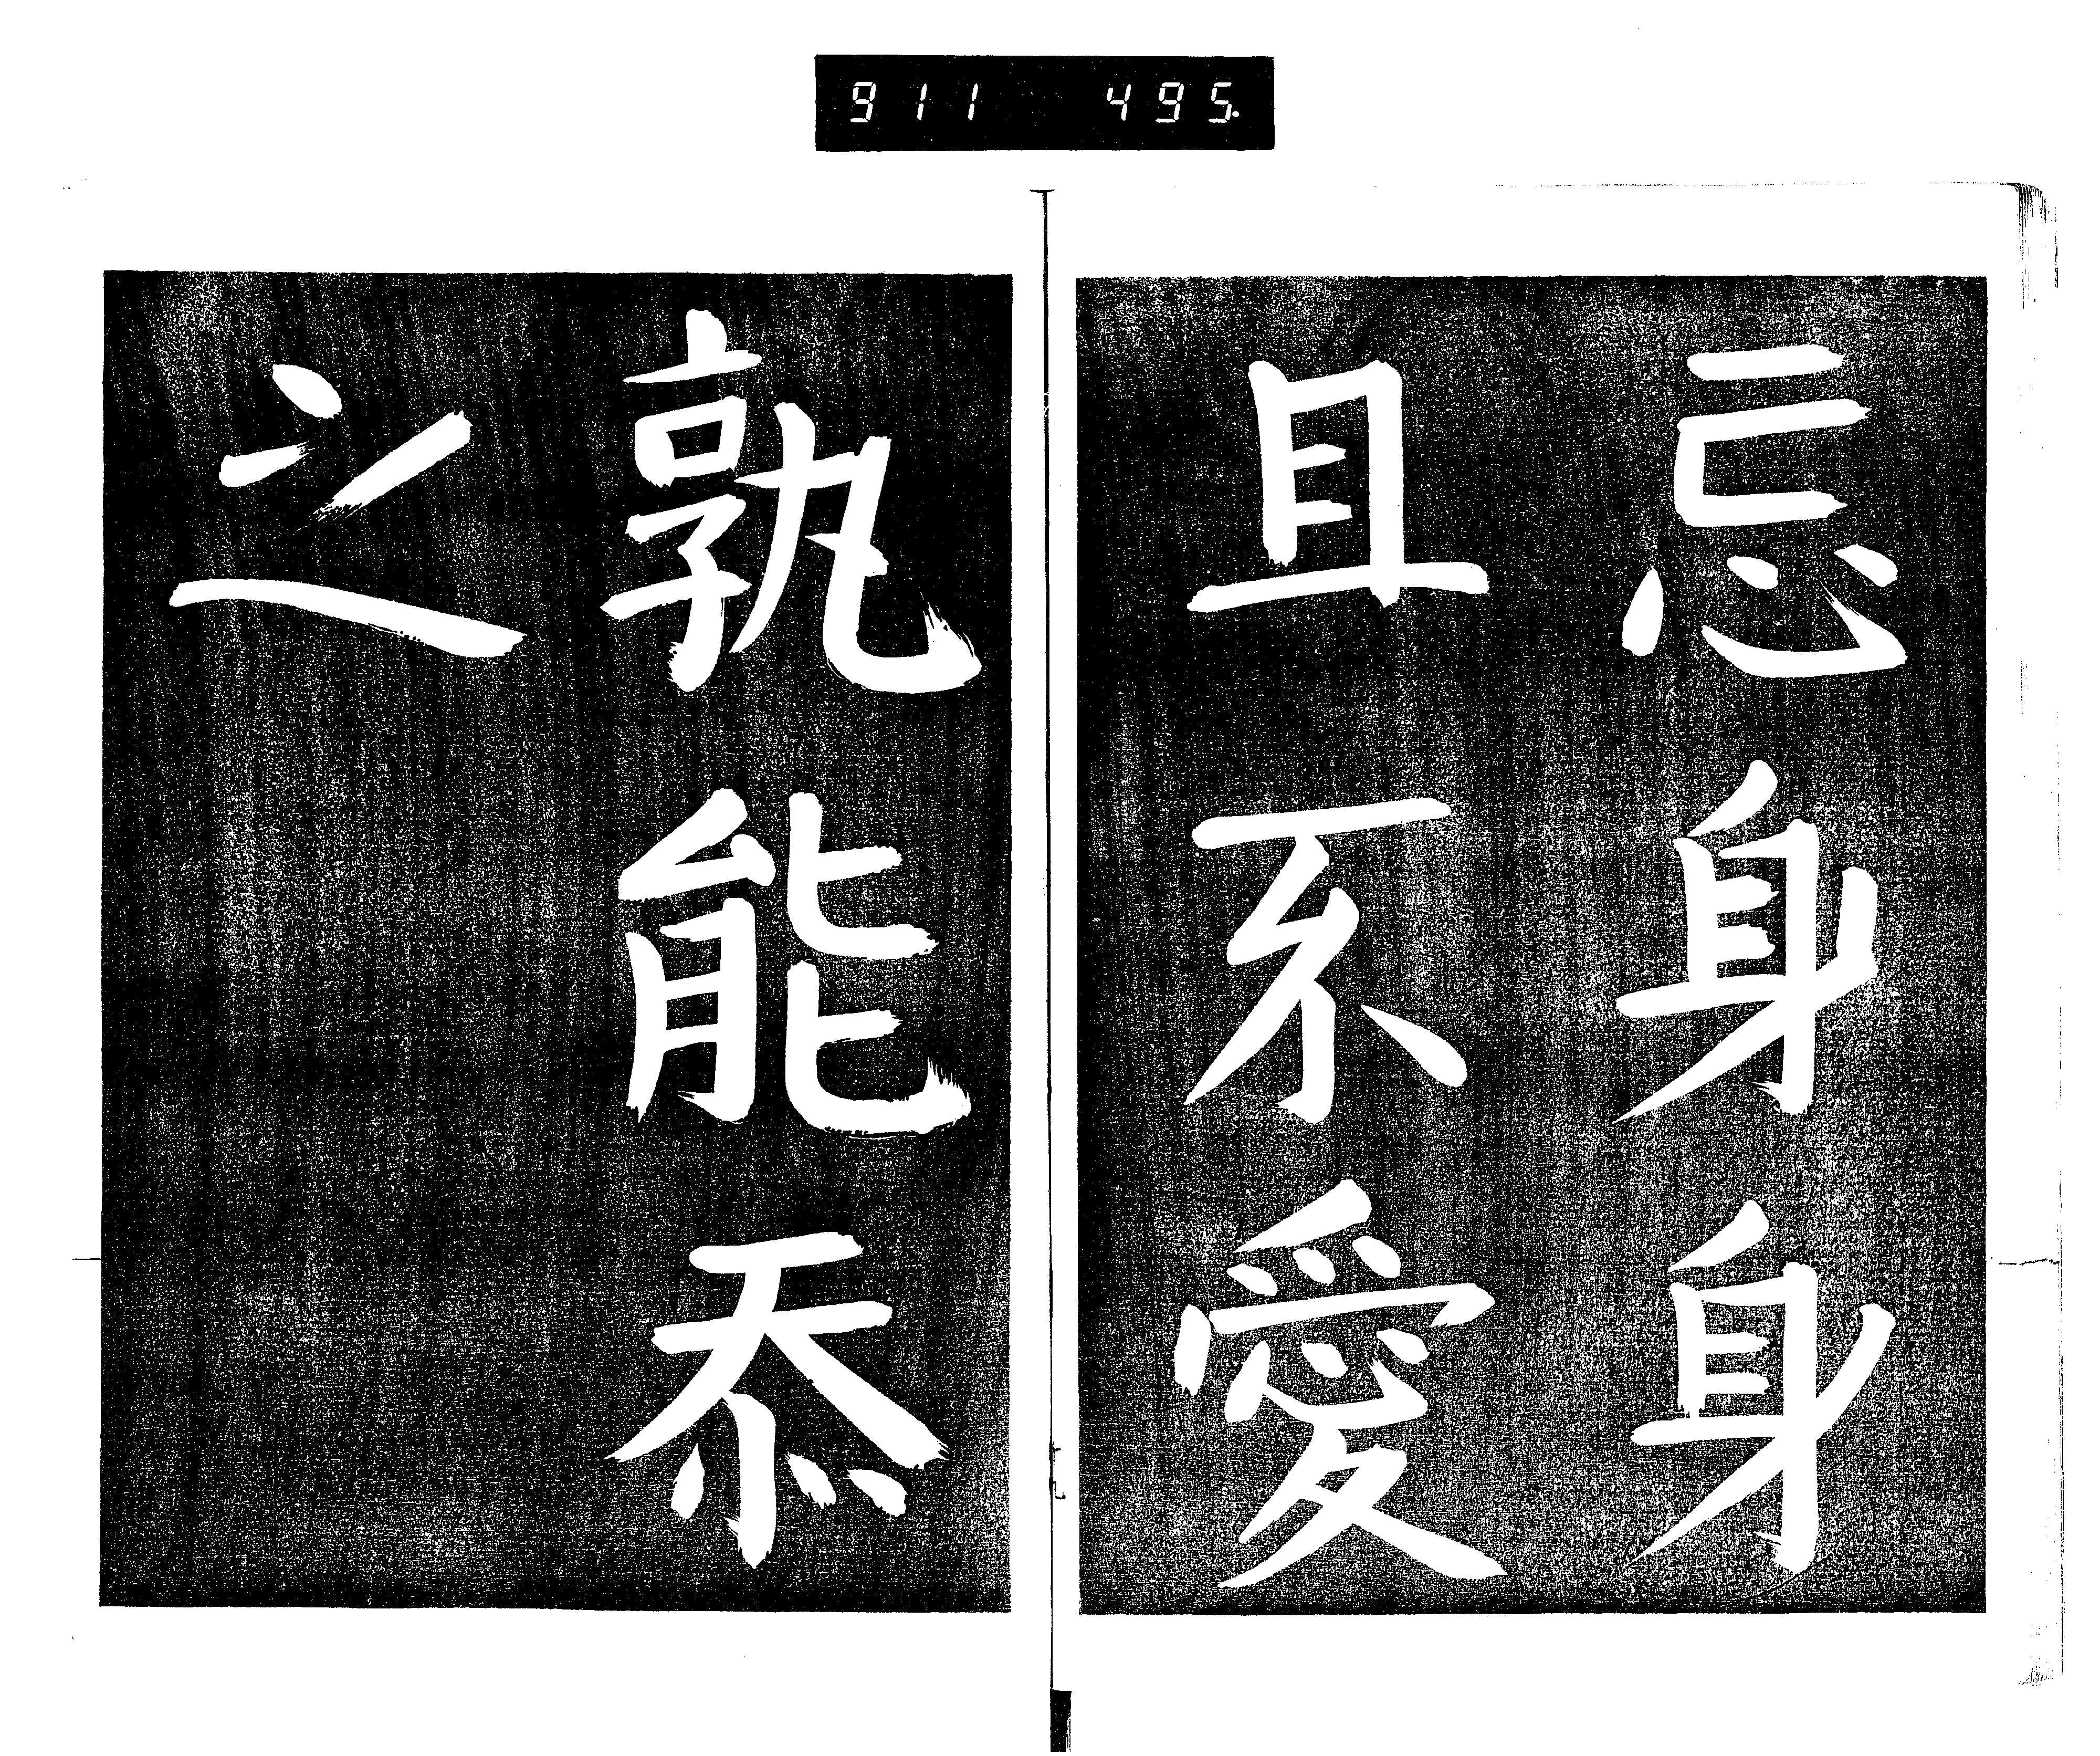 911 495.
忘身身
且不愛
孰能忝
之